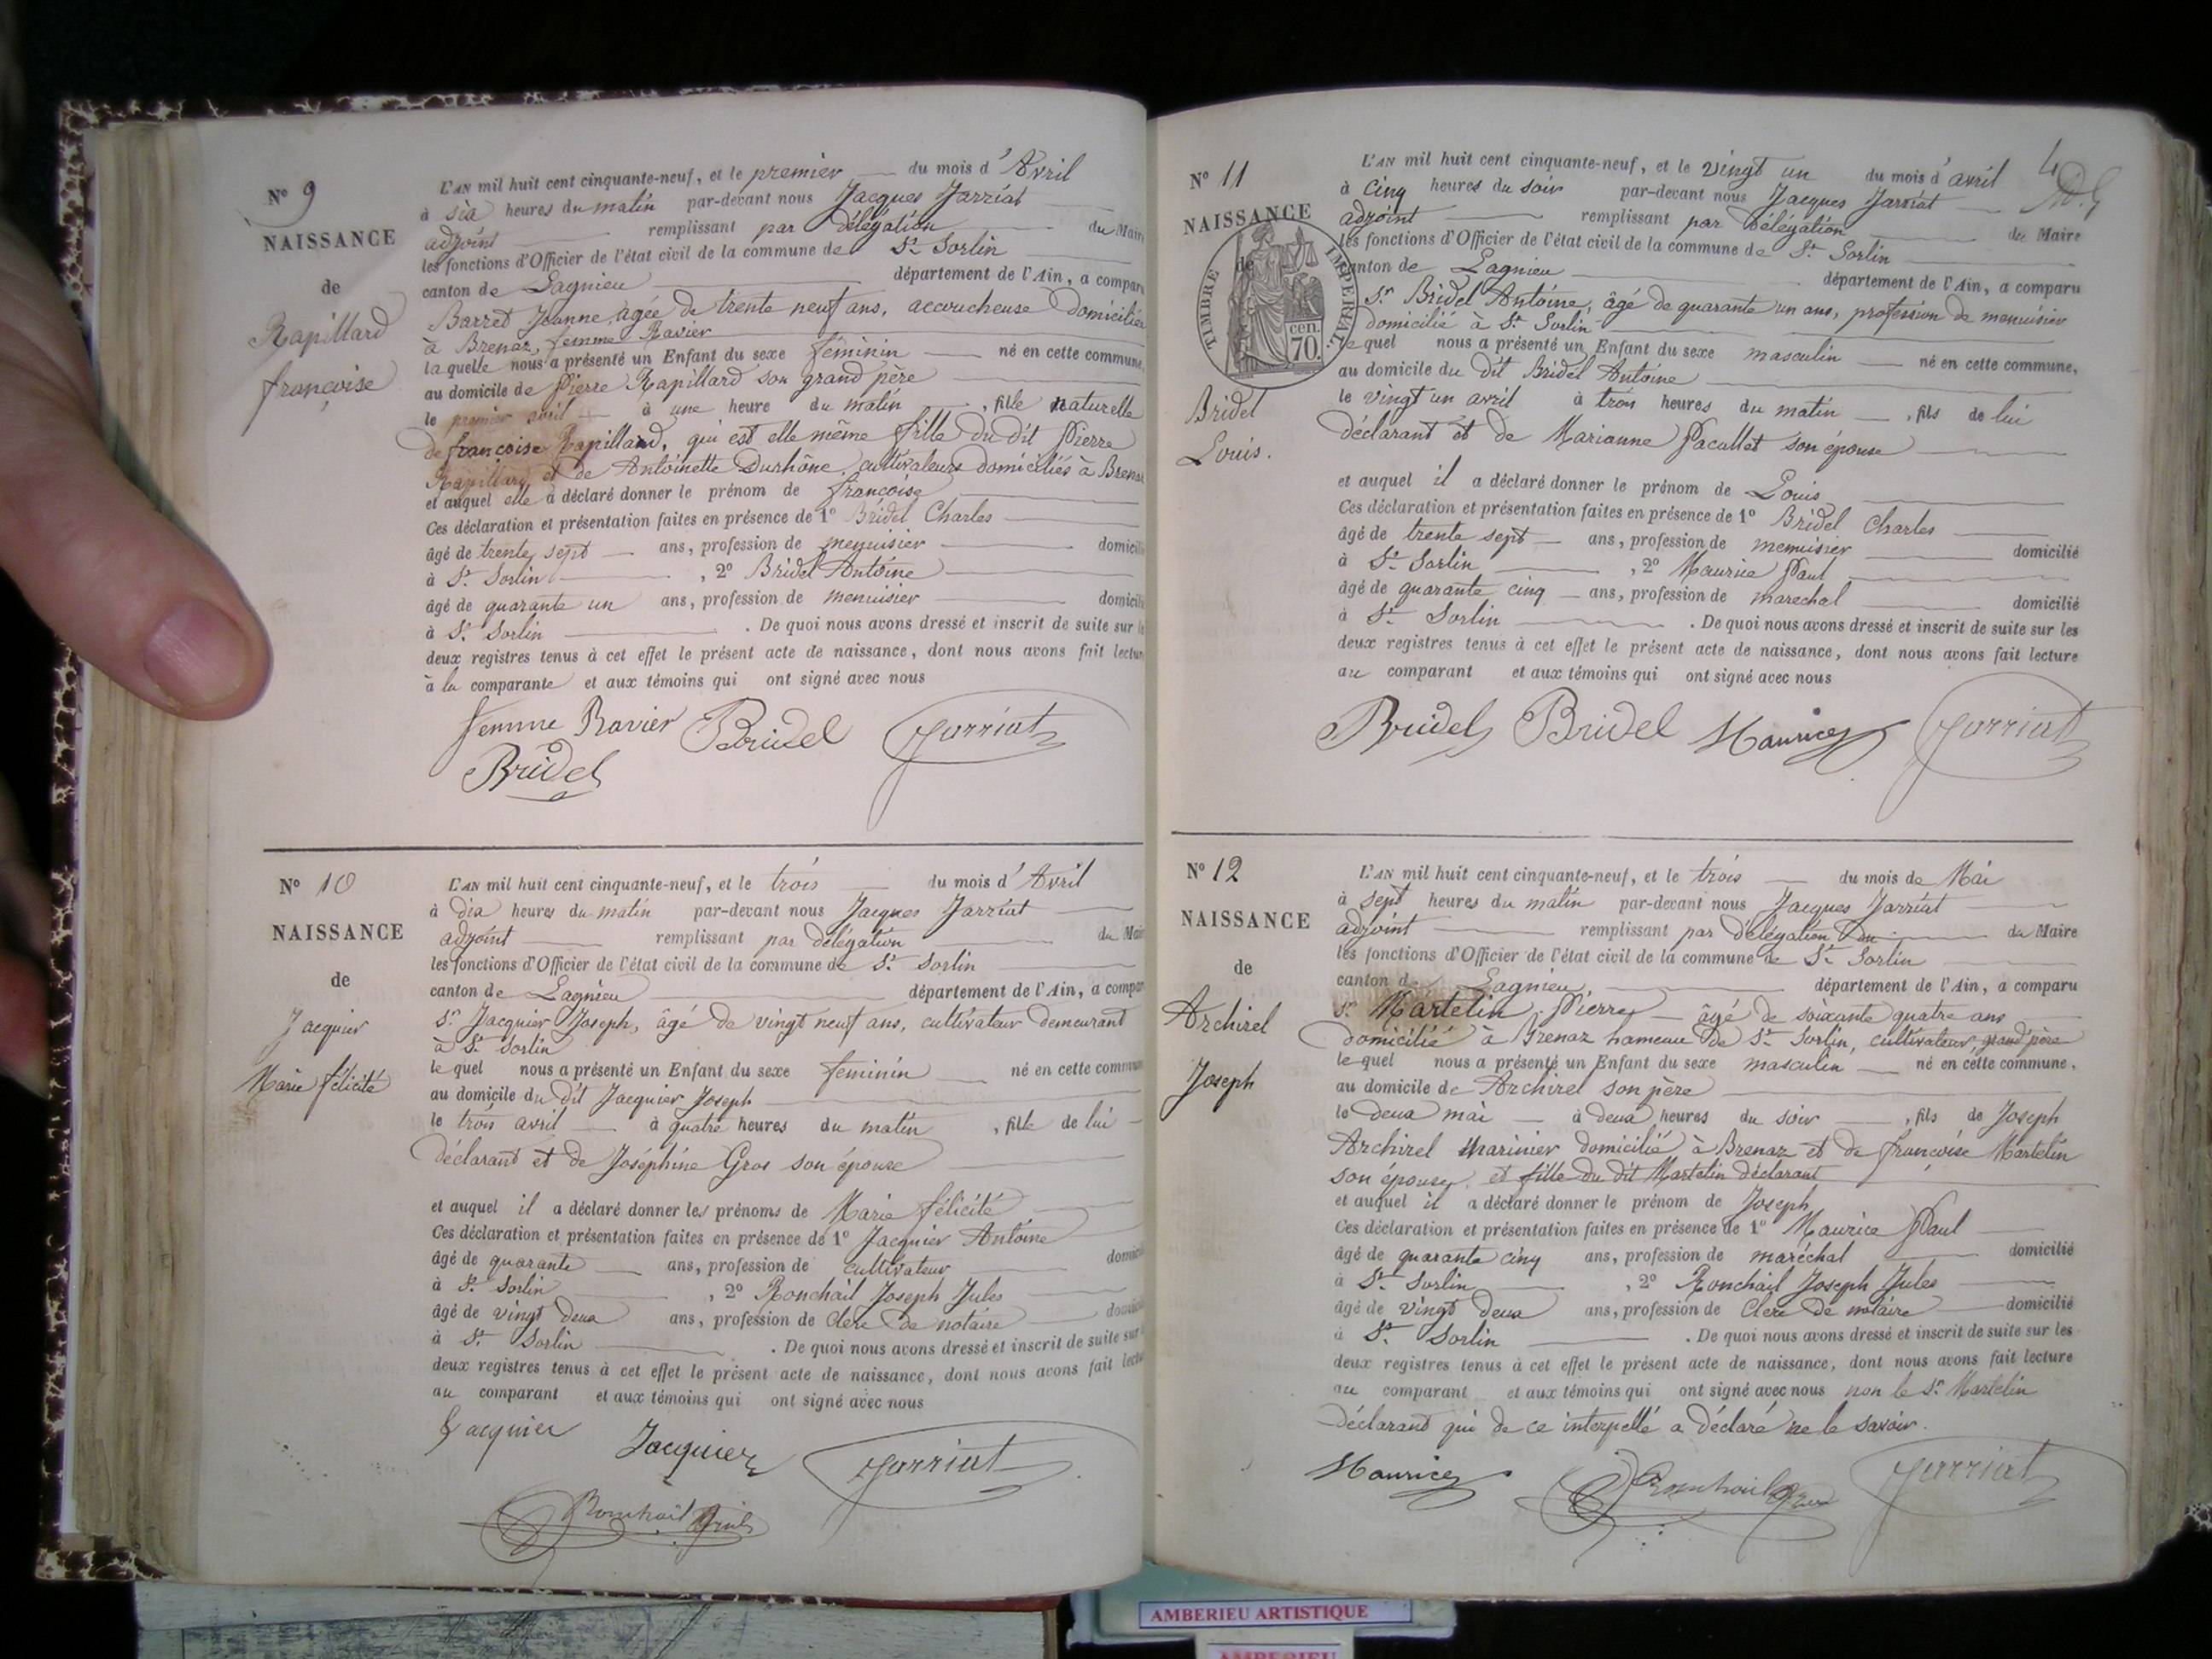 N° 9
NAISSANCE
de
Rapillard
françoise
L'AN mil huit cent cinquante-neuf, et le premier du mois d'Avril
à six heures du matin par-devant nous Jacques Jarriat
adjoint remplissant par délégation du Maire
les fonctions d'Officier de l'état civil de la commune de St Sorlin
canton de Lagnieu département de l'Ain, a comparu
Barret Jeanne, âgée de trente neuf ans, accoucheuse domiciliée
à Brenaz, femme Ravier
laquelle nous a présenté un Enfant du sexe féminin né en cette commune,
au domicile de Pierre Rapillard son grand père
le premier avril à une heure du matin, fille naturelle
de françoise Rapillard, qui est elle même fille du dit Pierre
Rapillard et de Antoinette Durhône, cultivateurs domiciliés à Brenaz
et auquel elle a déclaré donner le prénom de françoise
Ces déclaration et présentation faites en présence de 1° Bridel Charles
âgé de trente sept ans, profession de menuisier domicilié
à St Sorlin, 2° Bridel Antoine
âgé de quarante un ans, profession de menuisier domicilié
à St Sorlin. De quoi nous avons dressé et inscrit de suite sur les
deux registres tenus à cet effet le présent acte de naissance, dont nous avons fait lecture
à la comparante et aux témoins qui ont signé avec nous
femme Ravier Bridel Jarriat
Bridel
N° 10
NAISSANCE
de
Jacquier
Marie félicité
L'AN mil huit cent cinquante-neuf, et le trois du mois d'Avril
à dix heures du matin par-devant nous Jacques Jarriat
adjoint remplissant par délégation du Maire
les fonctions d'Officier de l'état civil de la commune de St Sorlin
canton de Lagnieu département de l'Ain, a comparu
Sr Jacquier Joseph, âgé de vingt neuf ans, cultivateur demeurant
à St Sorlin
lequel nous a présenté un Enfant du sexe feminin né en cette commune
au domicile du dit Jacquier Joseph
le trois avril à quatre heures du matin, fille de lui
déclarant et de Joséphine Gros son épouse
et auquel il a déclaré donner les prénoms de Marie félicité
Ces déclaration et présentation faites en présence de 1° Jacquier Antoine
âgé de quarante ans, profession de cultivateur domicilié
à St Sorlin, 2° Ronchail Joseph Jules
âgé de vingt deux ans, profession de Clerc de notaire domicilié
à St Sorlin. De quoi nous avons dressé et inscrit de suite sur
deux registres tenus à cet effet le présent acte de naissance, dont nous avons fait lecture
au comparant et aux témoins qui ont signé avec nous
Jacquier Jacquier Jarriat
Ronchail Jules
4
N° 11
NAISSANCE
de
TIMBRE IMPERIAL
cen.
70.
Bridel
Louis.
L'AN mil huit cent cinquante-neuf, et le vingt un du mois d'avril
à cinq heures du soir par-devant nous Jacques Jarriat
adjoint remplissant par délégation du Maire
les fonctions d'Officier de l'état civil de la commune de St Sorlin
canton de Lagnieu département de l'Ain, a comparu
Sr Bridel Antoine, âgé de quarante un ans, profession de menuisier
domicilié à St Sorlin
lequel nous a présenté un Enfant du sexe masculin né en cette commune,
au domicile du dit Bridel Antoine
le vingt un avril à trois heures du matin, fils de lui
déclarant et de Marianne Pacallet son épouse
et auquel il a déclaré donner le prénom de Louis
Ces déclaration et présentation faites en présence de 1° Bridel Charles
âgé de trente sept ans, profession de menuisier domicilié
à St Sorlin, 2° Maurice Paul
âgé de quarante cinq ans, profession de marechal domicilié
à St Sorlin. De quoi nous avons dressé et inscrit de suite sur les
deux registres tenus à cet effet le présent acte de naissance, dont nous avons fait lecture
au comparant et aux témoins qui ont signé avec nous
Bridel Bridel Maurice Jarriat
N° 12
NAISSANCE
de
Archirel
Joseph
L'AN mil huit cent cinquante-neuf, et le trois du mois de Mai
à sept heures du matin par-devant nous Jacques Jarriat
adjoint remplissant par délégation du du Maire
les fonctions d'Officier de l'état civil de la commune de St Sorlin
canton de Lagnieu, département de l'Ain, a comparu
Sr Martelin Pierre âgé de soixante quatre ans
domicilié à Brenaz hameau de St Sorlin, cultivateur, grand'père
lequel nous a présenté un Enfant du sexe masculin né en cette commune,
au domicile de Archirel son père
le deux mai à deux heures du soir, fils de Joseph
Archirel marinier domicilié à Brenaz et de françoise Martelin
son épouse, et fille du dit Martelin déclarant
et auquel il a déclaré donner le prénom de Joseph
Ces déclaration et présentation faites en présence de 1° Maurice Paul
âgé de quarante cinq ans, profession de maréchal domicilié
à St Sorlin, 2° Ronchail Joseph Jules
âgé de vingt deux ans, profession de Clerc de notaire domicilié
à St Sorlin. De quoi nous avons dressé et inscrit de suite sur les
deux registres tenus à cet effet le présent acte de naissance, dont nous avons fait lecture
au comparant et aux témoins qui ont signé avec nous non le Sr Martelin
déclarant qui de ce interpellé a déclaré ne le savoir.
Maurice Ronchail Jules Jarriat
AMBERIEU ARTISTIQUE
AMBERIEU